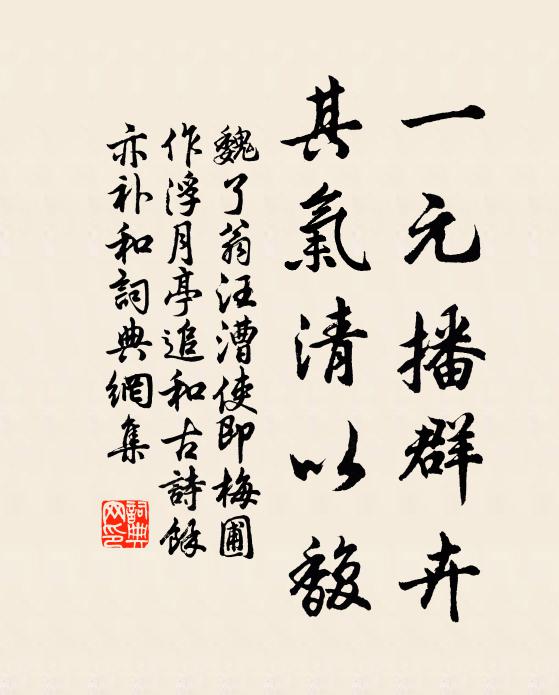 一元播群卉
其氣清以馥
魏了翁汪漕使即梅圃
作浮月亭追和古詩餘
亦补和詞典網集
詞典网印